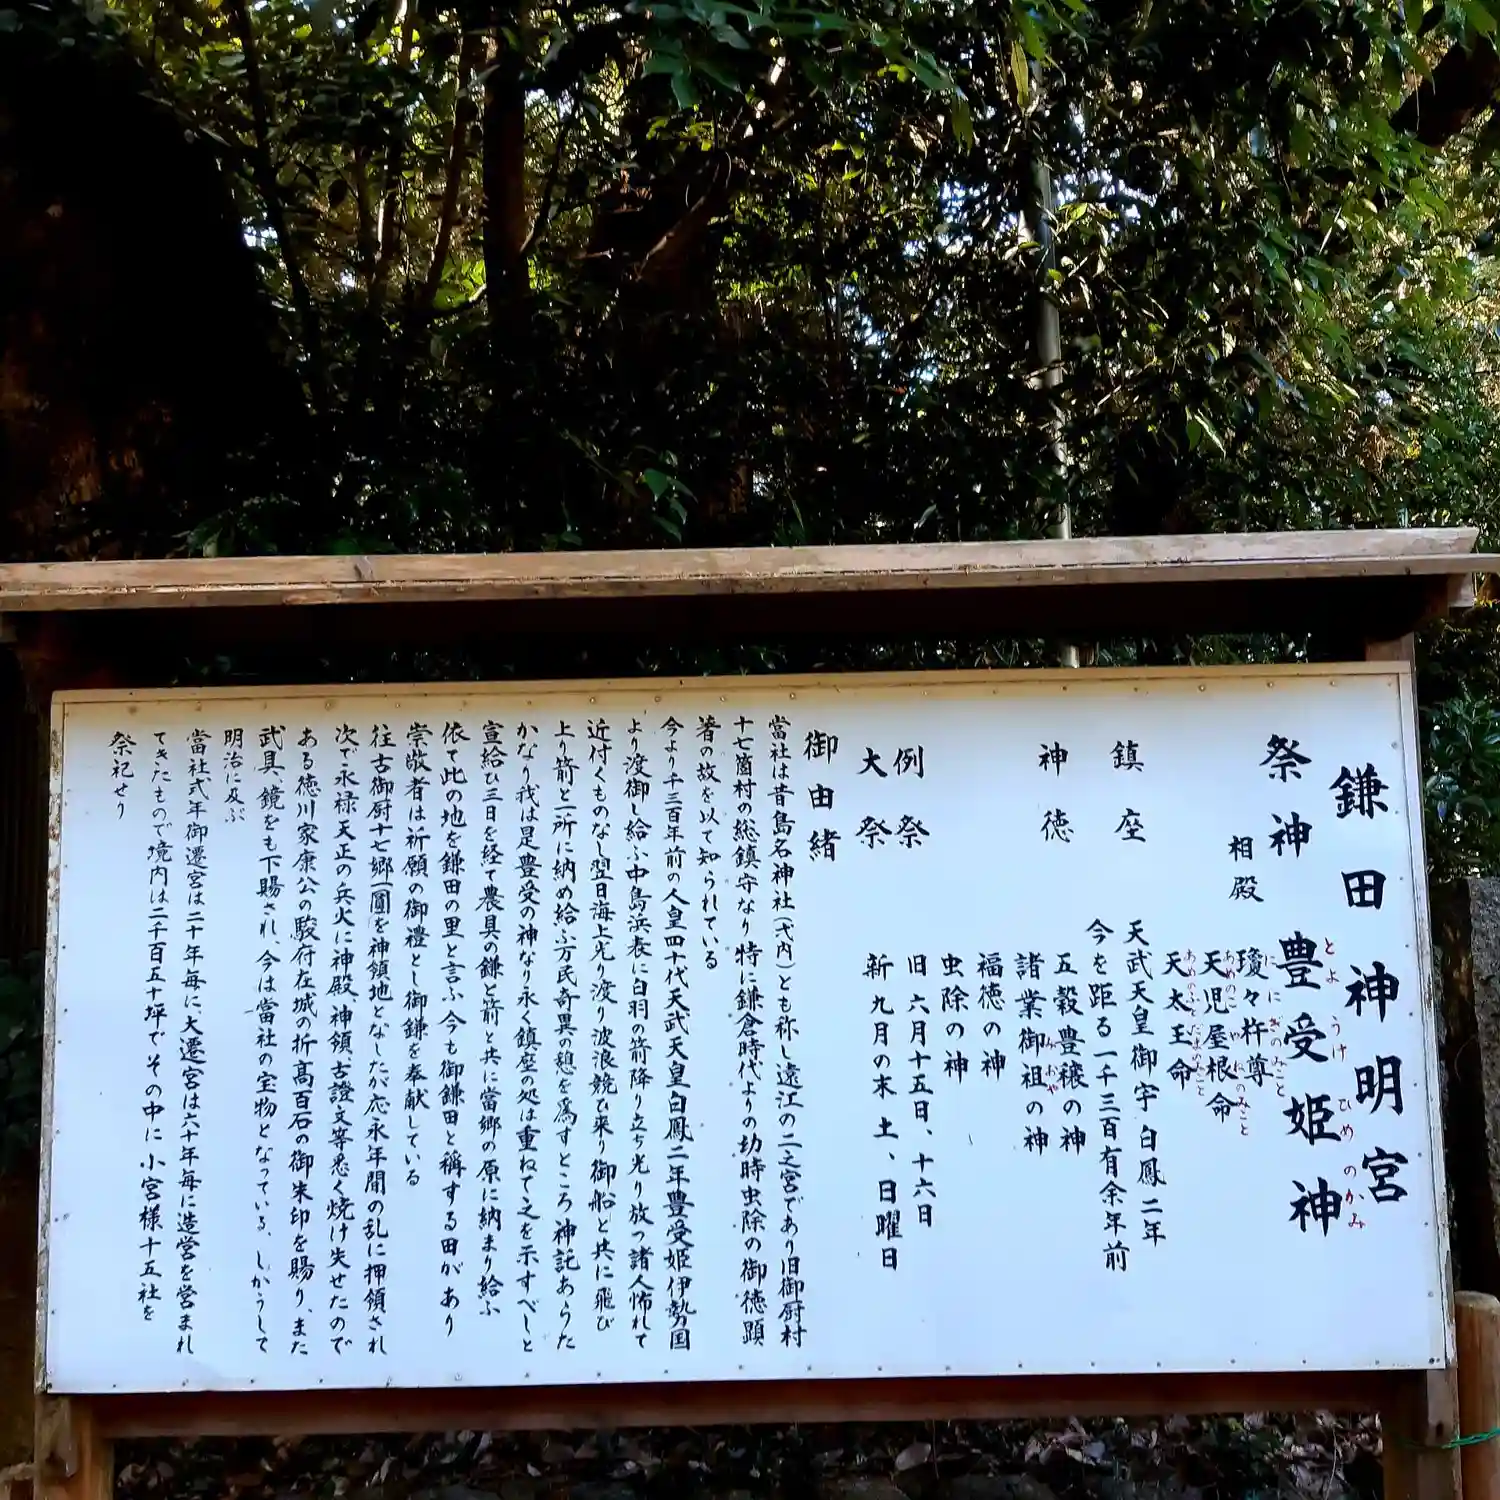 鎌田神明宮
祭神 豊受姫神
とようけひめのかみ
相殿 瓊々杵尊
ににぎのみこと
天児屋根命
あめのこやねのみこと
天太王命
あめのふとだまのみこと
鎮座 天武天皇御宇白鳳二年
今を距る一千三百有余年前
神徳 五穀豊穣の神
諸業御祖の神
みおや
福徳の神
虫除の神
例祭 旧六月十五日、十六日
大祭 新九月の末 土、日曜日
御由緒
當社は昔島名神社(式内)とも称し遠江の二之宮であり旧御厨村
十七箇村の総鎮守なり特に鎌倉時代よりの幼時虫除の御徳顕
著の故を以て知られている
今より千三百年前の人皇四十代天武天皇白鳳二年豊受姫伊勢国
より渡御し給ふ中島浜表に白羽の箭降り立ち光り放つ諸人怖れて
近付くものなし翌日海上光り渡り波浪競ひ来り御船と共に飛び
上り箭と一所に納め給ふ万民奇異の憩を爲すところ神託あらた
かなり我は是豊受の神なり永く鎮座の処は重ねて之を示すべしと
宣給ひ三日を経て農具の鎌と箭と共に當郷の原に納まり給ふ
依て此の地を鎌田の里と言ふ今も御鎌田と稱する田があり
崇敬者は祈願の御禮とし御鎌を奉献している
往古御厨十七郷一圓を神領地となしたが応永年間の乱に押領され
次で永禄天正の兵火に神殿、神領、古證文等悉く焼け失せたので
ある徳川家康公の駿府在城の折高百石の御朱印を賜り、また
武具、鏡をも下賜され、今は當社の宝物となっている、しかうして
明治に及ぶ
當社式年御遷宮は二十年毎に、大遷宮は六十年毎に造営を営まれ
てきたもので境内は二千百五十坪でその中に小宮様十五社を
祭祀せり